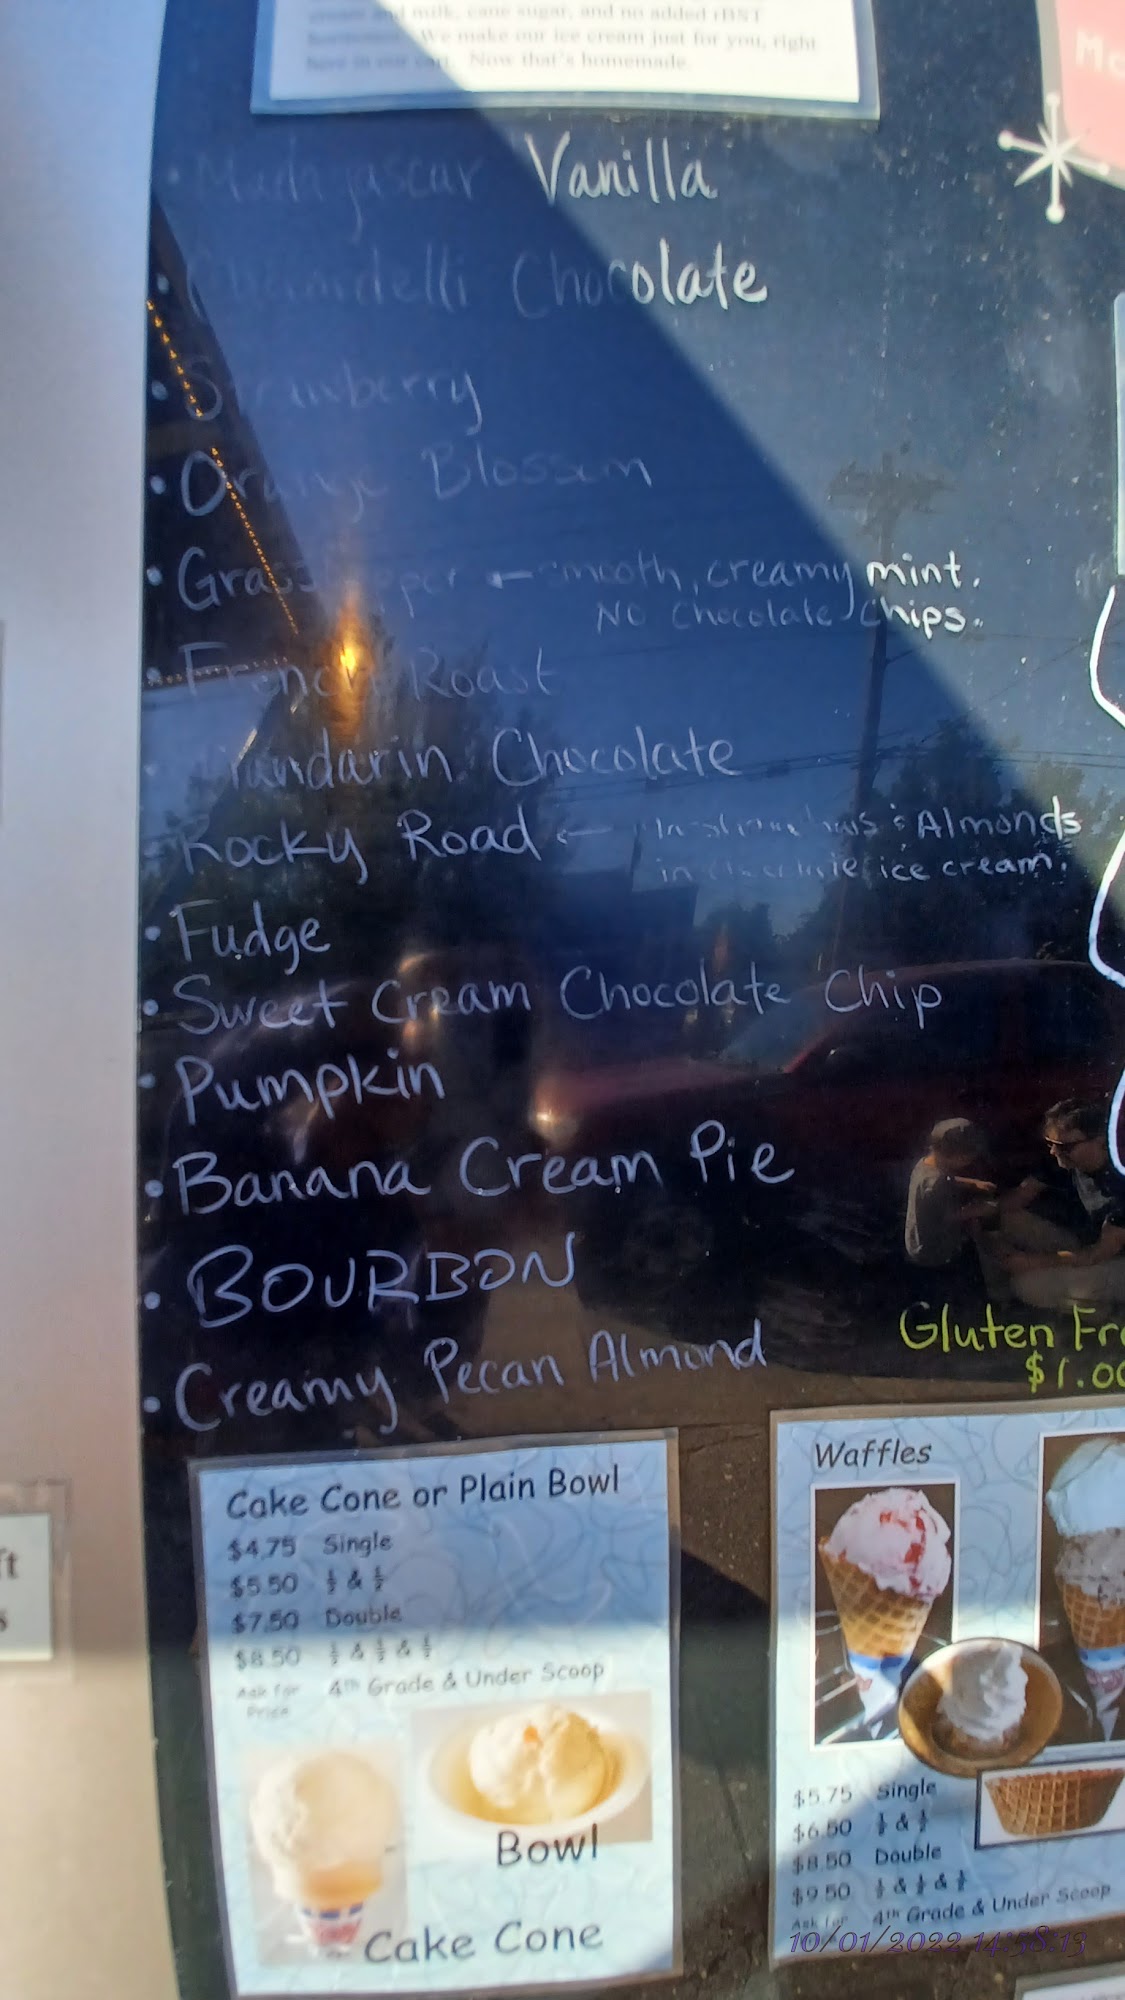 cream and milk, cane sugar, and no added rBST
hormones. We make our ice cream just for you, right
here in our cart. Now that's homemade.
• Madagascar Vanilla
• Ghirardelli Chocolate
• Strawberry
• Orange Blossom
• Grasshopper ← smooth, creamy mint.
NO Chocolate Chips.
• French Roast
• Mandarin Chocolate
• Rocky Road ← Almonds
in ice cream.
• Fudge
• Sweet Cream Chocolate Chip
• Pumpkin
• Banana Cream Pie
• BOURBON
• Creamy Pecan Almond
Gluten
$1.00
Cake Cone or Plain Bowl
$4.75 Single
$5.50 ½ & ½
$7.50 Double
$8.50 ½ & ½ & ½
Ask for Price 4th Grade & Under Scoop
Bowl
Cake Cone
Waffles
$5.75 Single
$6.50 ½ & ½
$8.50 Double
$9.50 ½ & ½ & ½
Ask for 4th Grade & Under Scoop
10/01/2022 14:58:13